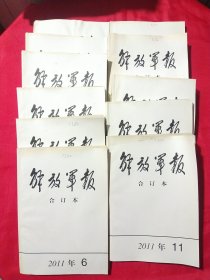 解放军报
合订本
解放军报
合订本
解放军报
解放军报
解放军报
解放军报
解放军报
合订本
2011年 6
解放军报
合订本
2011年 11